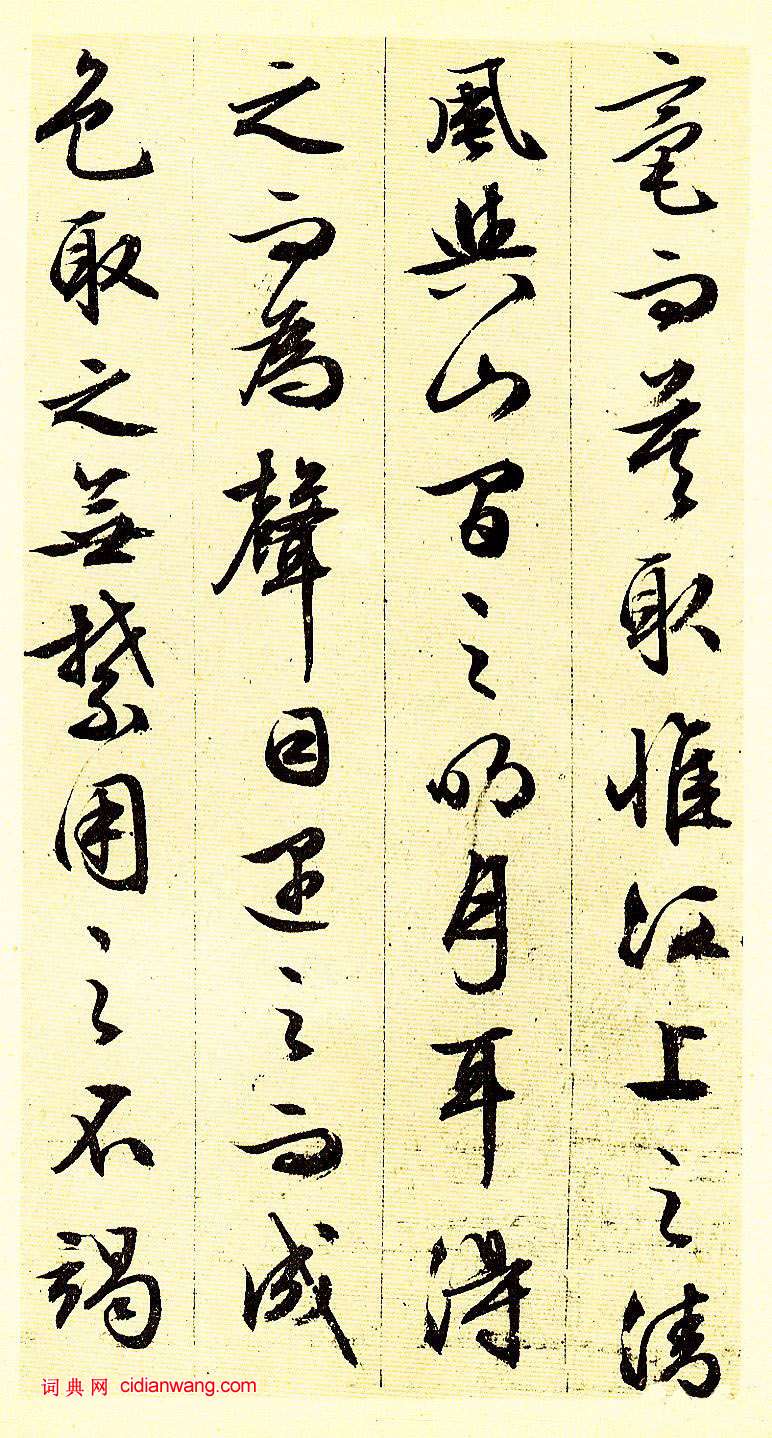 毫而莫取惟江上之清
風與山間之明月耳得
之而為聲目遇之而成
色取之無禁用之不竭
词典网 cidianwang.com